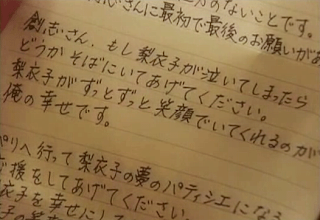 のないことです。
さんに最初で最後のお願いがあ
創志さん、もし梨衣子が泣いてしまったら
どうかそばにいてあげてください。
梨衣子がずっとずっと笑顔でいてくれるのが
俺の幸せです。
パリへ行って梨衣子の夢のパティシエになる
応援をしてあげてください。
衣子を幸せにし